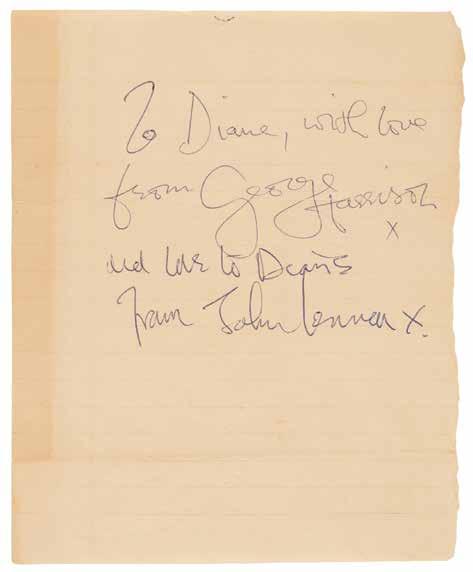 To Diane, with love
from George
Harrison
x
and love to Diane
from John Lennon x.